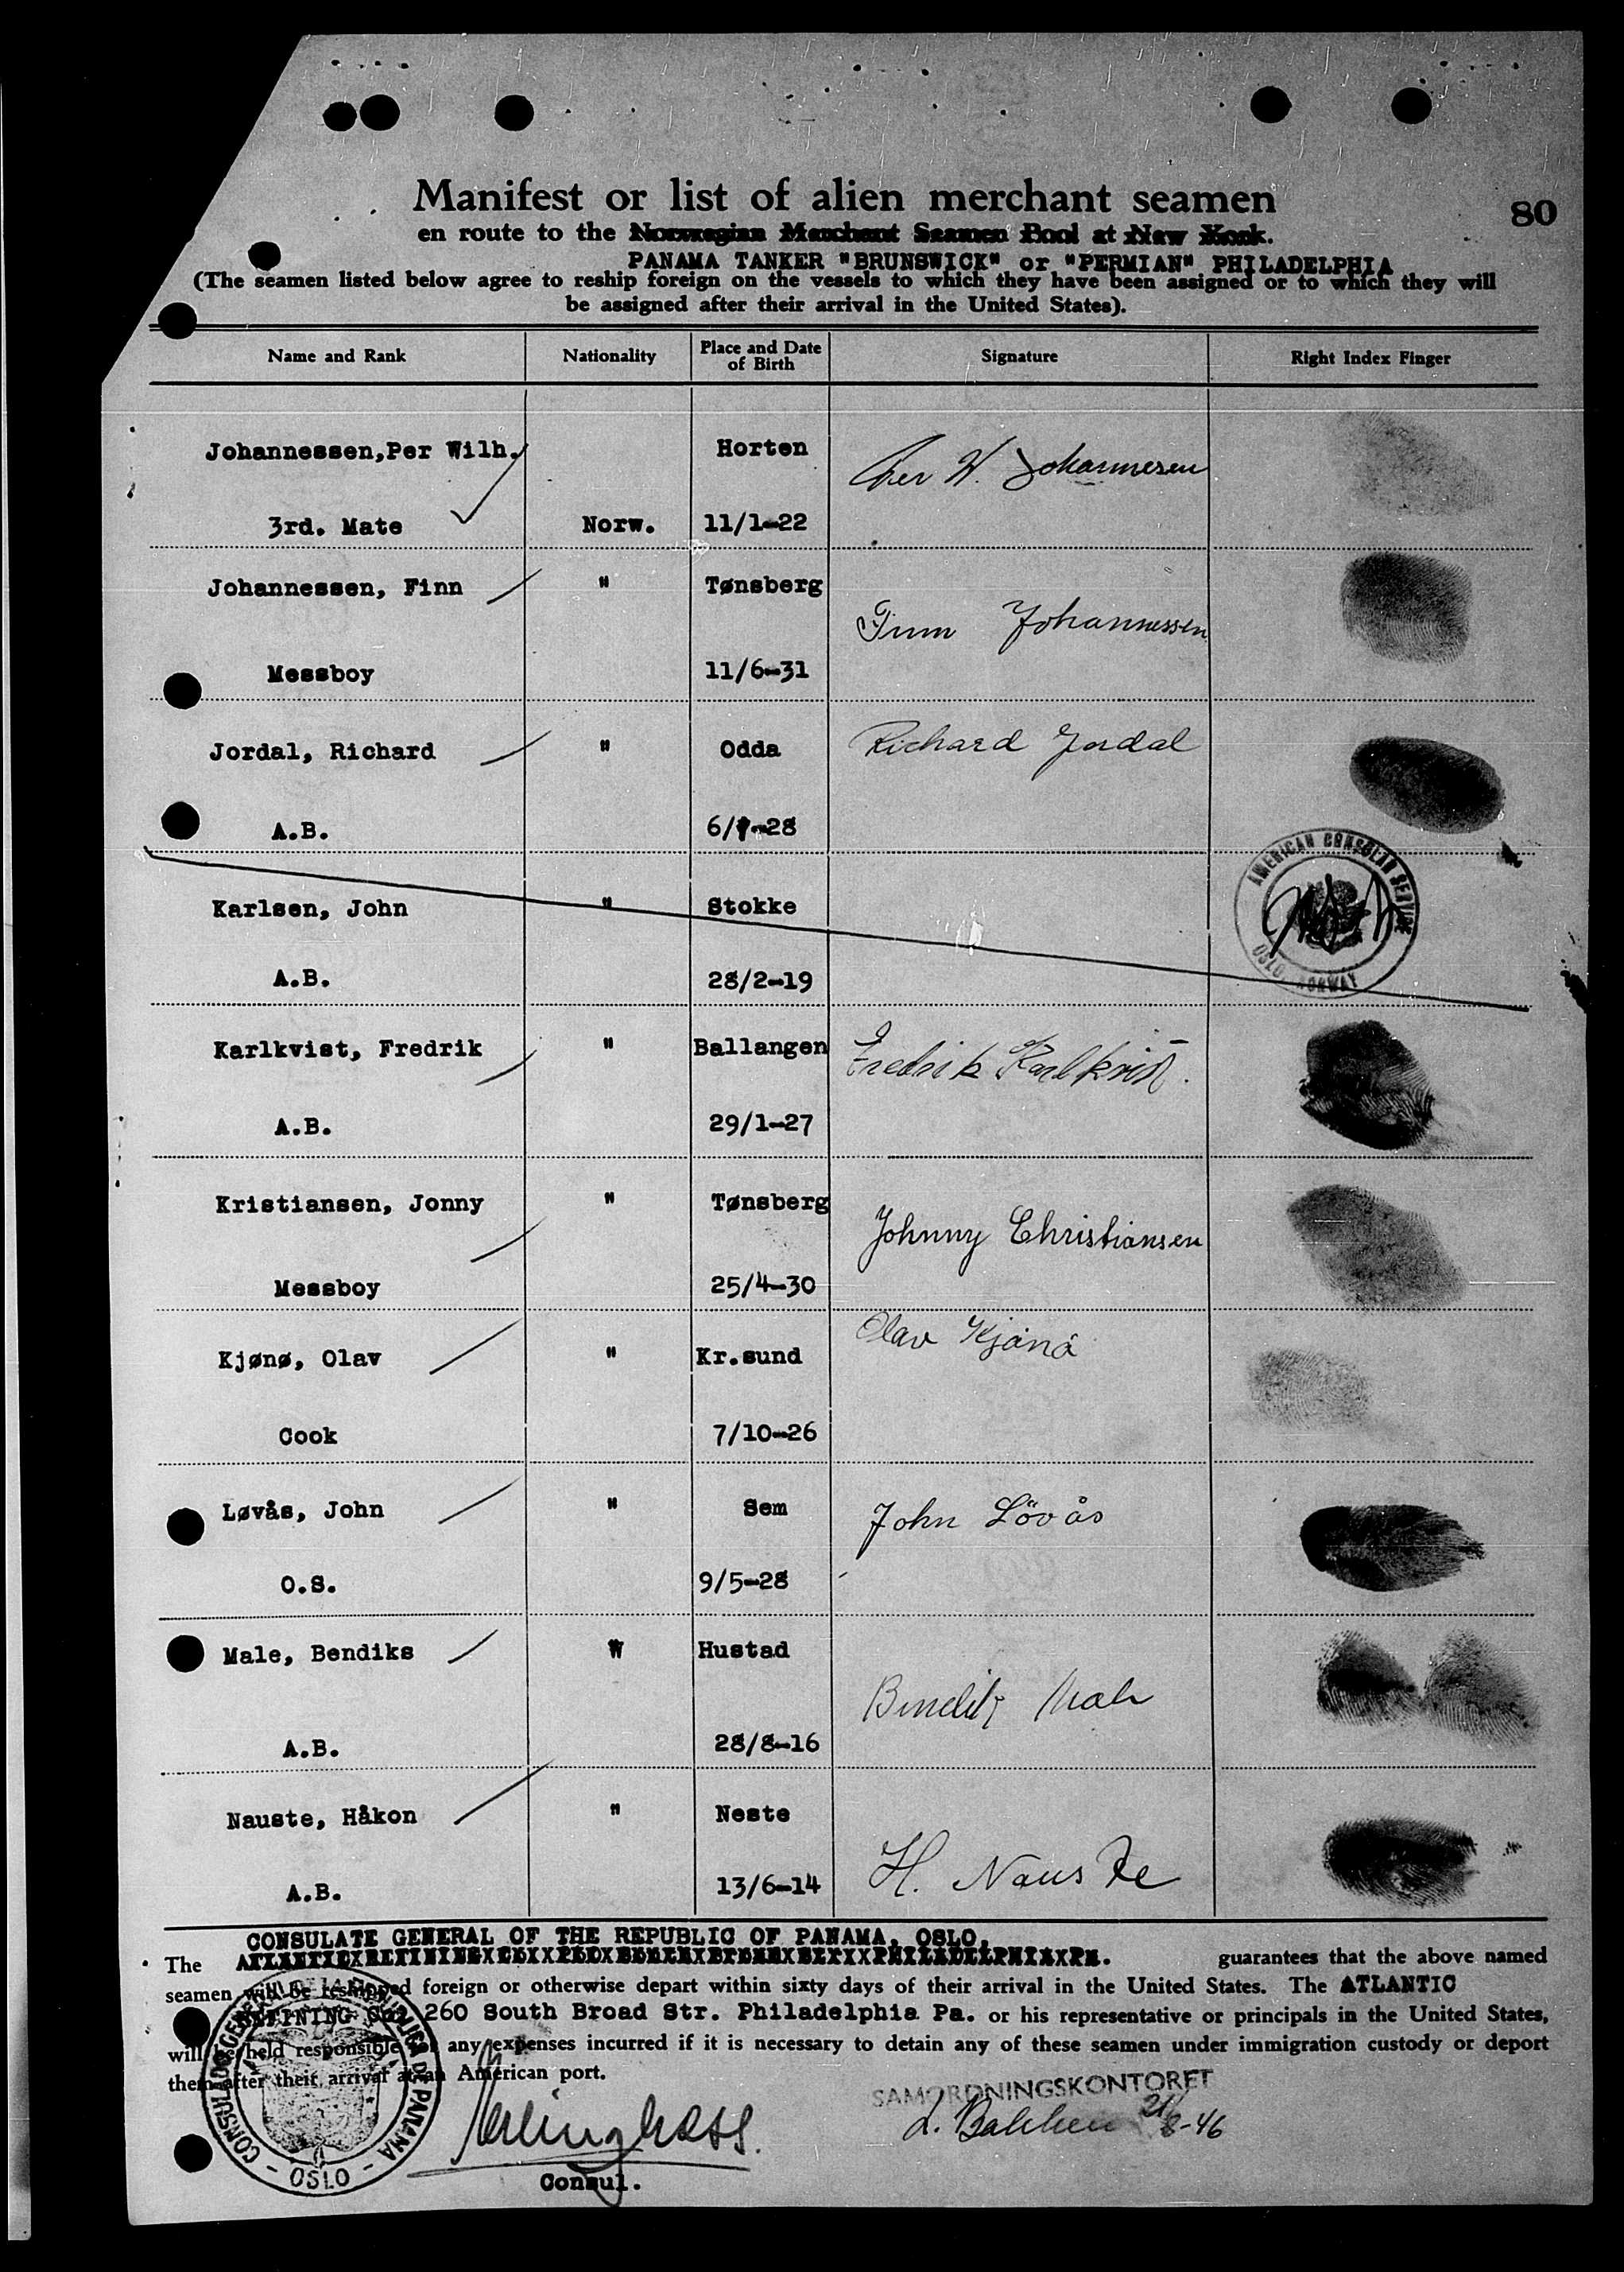 Manifest or list of alien merchant seamen
80
en route to the Norwegian Merchant Seamen Pool at New York.
PANAMA TANKER "BRUNSWICK" or "PERMIAN" PHILADELPHIA
(The seamen listed below agree to reship foreign on the vessels to which they have been assigned or to which they will
be assigned after their arrival in the United States).
Name and Rank Nationality Place and Date of Birth Signature Right Index Finger
Johannessen,Per Wilh. Horten Per W. Johannesen
3rd. Mate Norw. 11/1-22
Johannessen, Finn " Tønsberg
Finn Johannessen
Messboy 11/6-31
Jordal, Richard " Odda Richard Jordal
A.B. 6/ -28
AMERICAN CONSULAR SERVICE
OSLO, NORWAY
Karlsen, John " Stokke
A.B. 28/2-19
Karlkvist, Fredrik " Ballangen Fredrik Karlkvist.
A.B. 29/1-27
Kristiansen, Jonny " Tønsberg
Johnny Christiansen
Messboy 25/4-30
Kjønø, Olav " Kr.sund Olav Kjønø
Cook 7/10-26
Løvås, John " Sem John Lövås
O.S. 9/5-28
Male, Bendiks " Hustad
Bendik Male
A.B. 28/8-16
Nauste, Håkon " Neste
A.B. 13/6-14 H. Nauste
CONSULATE GENERAL OF THE REPUBLIC OF PANAMA, OSLO,
The guarantees that the above named
seamen will be reshipped foreign or otherwise depart within sixty days of their arrival in the United States. The ATLANTIC
REFINING CO. 260 South Broad Str. Philadelphia Pa. or his representative or principals in the United States,
will be held responsible for any expenses incurred if it is necessary to detain any of these seamen under immigration custody or deport
them after their arrival at an American port.
CONSULADO GENERAL DE LA REPUBLICA DE PANAMA
- OSLO -
SAMORDNINGSKONTORET
8-46
Consul.